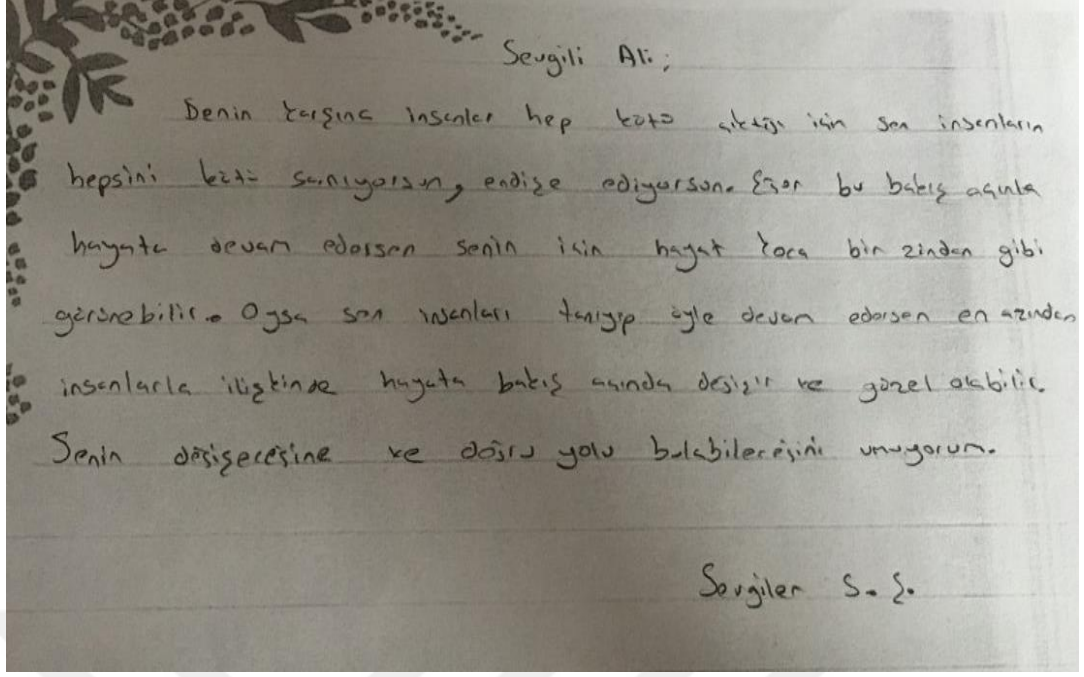 Sevgili Ali;
Senin karşına insanlar hep kötü çıktığı için sen insanların
hepsini kötü sanıyorsun, endişe ediyorsun. Eğer bu bakış açınla
hayata devam edersen senin için hayat koca bir zindan gibi
görünebilir. Oysa sen insanları tanıyıp öyle devam edersen en azından
insanlarla ilişkinde hayata bakış açında değişir ve güzel olabilir.
Senin değişeceğine ve doğru yolu bulabileceğini umuyorum.
Sevgiler S. Ş.